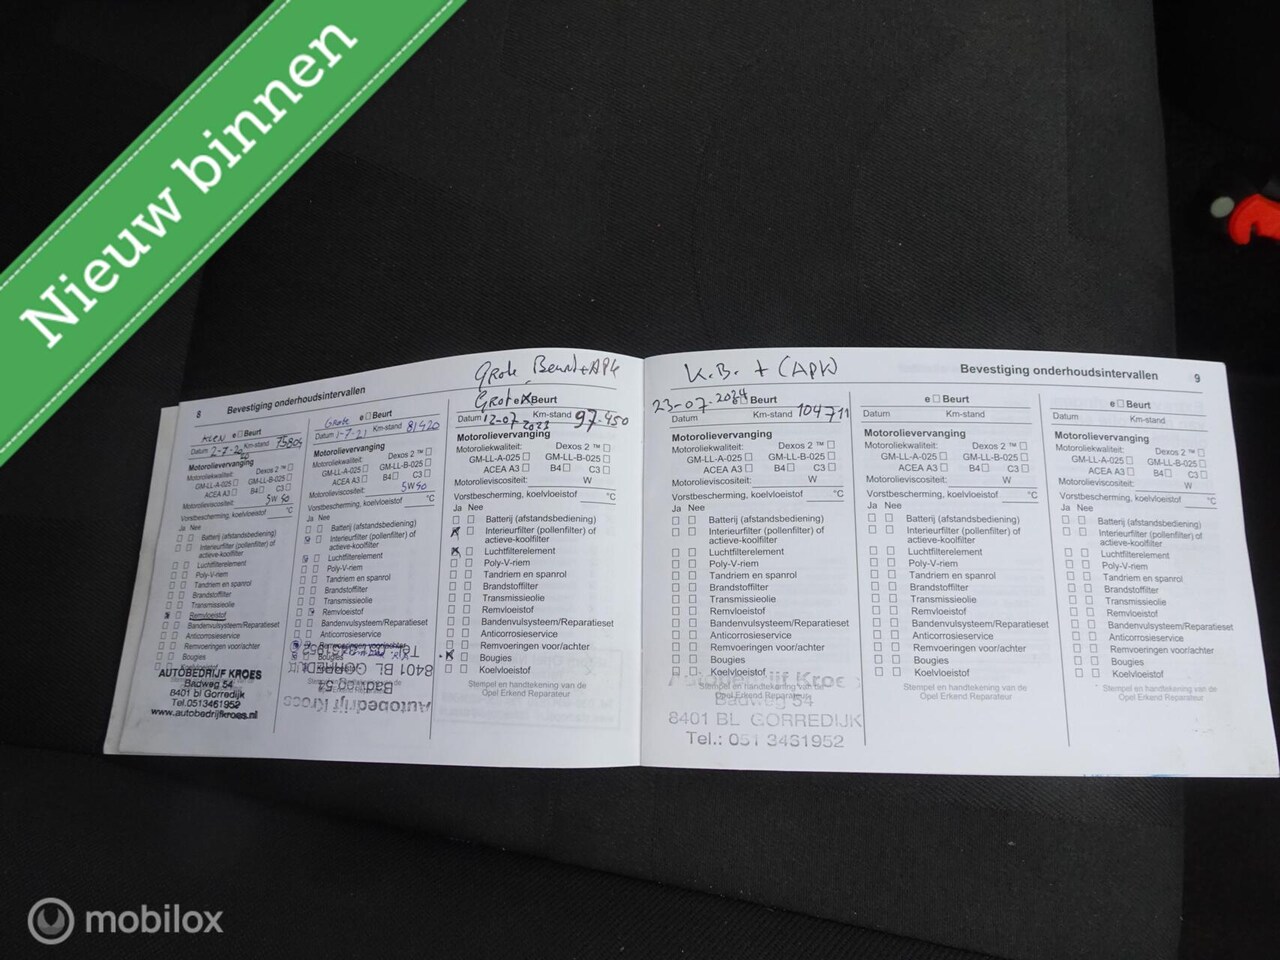 Nieuw binnen
8 Bevestiging onderhoudsintervallen
e Beurt
Datum 2-7- Km-stand 75804
Motorolievervanging
Motoroliekwaliteit: Dexos 2 ™
GM-LL-A-025 GM-LL-B-025
ACEA A3 B4 C3
Motorolieviscositeit: 5W40
Vorstbescherming, koelvloeistof °C
Ja Nee
Batterij (afstandsbediening)
Interieurfilter (pollenfilter) of
actieve-koolfilter
Luchtfilterelement
Poly-V-riem
Tandriem en spanrol
Brandstoffilter
Transmissieolie
Remvloeistof
Bandenvulsysteem/Reparatieset
Anticorrosieservice
Remvoeringen voor/achter
Bougies
Koelvloeistof
AUTOBEDRIJF KROES
Badweg 54
8401 bl Gorredijk
Tel.0513461952
www.autobedrijfkroes.nl
Grote
e Beurt
Datum 1-7-21 Km-stand 81420
Motorolievervanging
Motoroliekwaliteit: Dexos 2 ™
GM-LL-A-025 GM-LL-B-025
ACEA A3 B4 C3
Motorolieviscositeit: 5W40
Vorstbescherming, koelvloeistof °C
Ja Nee
Batterij (afstandsbediening)
Interieurfilter (pollenfilter) of
actieve-koolfilter
Luchtfilterelement
Poly-V-riem
Tandriem en spanrol
Brandstoffilter
Transmissieolie
Remvloeistof
Bandenvulsysteem/Reparatieset
Anticorrosieservice
Remvoeringen voor/achter
Bougies
8401 BL GORREDIJK
Badweg 54
Autobedrijf Kroes
Grote Beurt + APK
Grote Beurt
Datum 12-07 2023 Km-stand 97.450
Motorolievervanging
Motoroliekwaliteit: Dexos 2 ™
GM-LL-A-025 GM-LL-B-025
ACEA A3 B4 C3
Motorolieviscositeit: W
Vorstbescherming, koelvloeistof °C
Ja Nee
Batterij (afstandsbediening)
Interieurfilter (pollenfilter) of
actieve-koolfilter
Luchtfilterelement
Poly-V-riem
Tandriem en spanrol
Brandstoffilter
Transmissieolie
Remvloeistof
Bandenvulsysteem/Reparatieset
Anticorrosieservice
Remvoeringen voor/achter
Bougies
Koelvloeistof
Stempel en handtekening van de
Opel Erkend Reparateur
K.B. + (APK)
Bevestiging onderhoudsintervallen 9
23-07-2024 Beurt
Datum Km-stand 104711
Motorolievervanging
Motoroliekwaliteit: Dexos 2 ™
GM-LL-A-025 GM-LL-B-025
ACEA A3 B4 C3
Motorolieviscositeit: W
Vorstbescherming, koelvloeistof °C
Ja Nee
Batterij (afstandsbediening)
Interieurfilter (pollenfilter) of
actieve-koolfilter
Luchtfilterelement
Poly-V-riem
Tandriem en spanrol
Brandstoffilter
Transmissieolie
Remvloeistof
Bandenvulsysteem/Reparatieset
Anticorrosieservice
Remvoeringen voor/achter
Bougies
Koelvloeistof
Autobedrijf Kroes
Stempel en handtekening van de
Opel Erkend Reparateur
Badweg 54
8401 BL GORREDIJK
Tel.: 051 3461952
e Beurt
Datum Km-stand
Motorolievervanging
Motoroliekwaliteit: Dexos 2 ™
GM-LL-A-025 GM-LL-B-025
ACEA A3 B4 C3
Motorolieviscositeit: W
Vorstbescherming, koelvloeistof °C
Ja Nee
Batterij (afstandsbediening)
Interieurfilter (pollenfilter) of
actieve-koolfilter
Luchtfilterelement
Poly-V-riem
Tandriem en spanrol
Brandstoffilter
Transmissieolie
Remvloeistof
Bandenvulsysteem/Reparatieset
Anticorrosieservice
Remvoeringen voor/achter
Bougies
Koelvloeistof
Stempel en handtekening van de
Opel Erkend Reparateur
e Beurt
Datum Km-stand
Motorolievervanging
Motoroliekwaliteit: Dexos 2 ™
GM-LL-A-025 GM-LL-B-025
ACEA A3 B4 C3
Motorolieviscositeit: W
Vorstbescherming, koelvloeistof °C
Ja Nee
Batterij (afstandsbediening)
Interieurfilter (pollenfilter) of
actieve-koolfilter
Luchtfilterelement
Poly-V-riem
Tandriem en spanrol
Brandstoffilter
Transmissieolie
Remvloeistof
Bandenvulsysteem/Reparatieset
Anticorrosieservice
Remvoeringen voor/achter
Bougies
Koelvloeistof
Stempel en handtekening van de
Opel Erkend Reparateur
mobilox